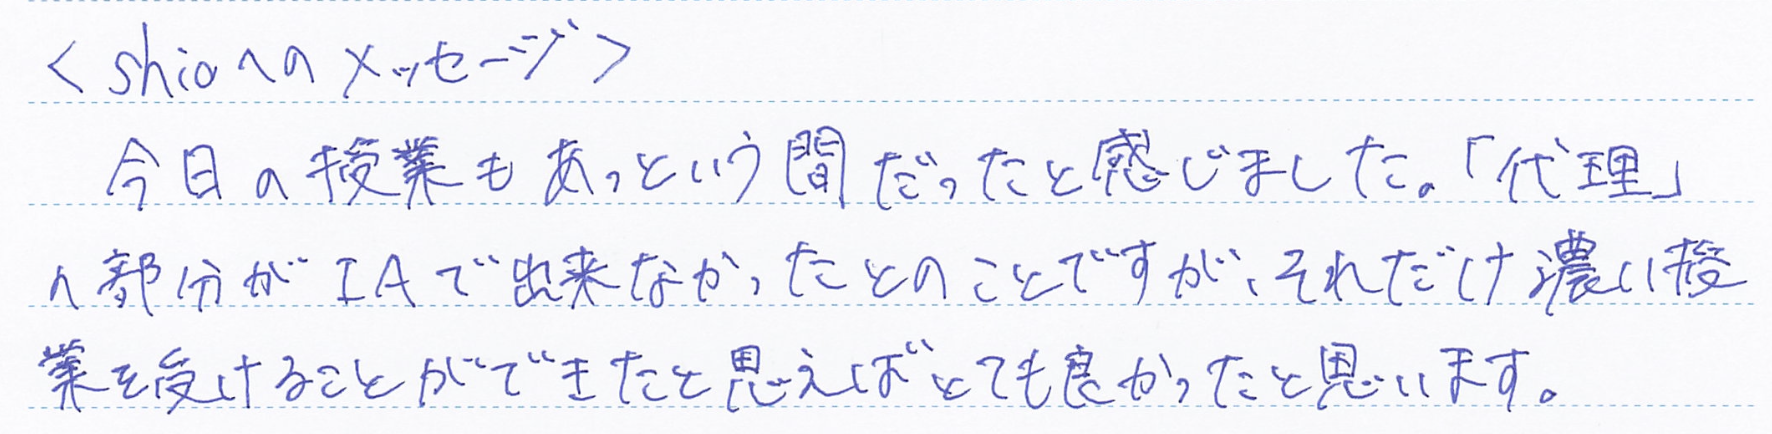 <shioへのメッセージ>
今日の授業もあっという間だったと感じました。「代理」
の部分がIAで出来なかったとのことですが、それだけ濃い授
業を受けることができたと思えばとても良かったと思います。